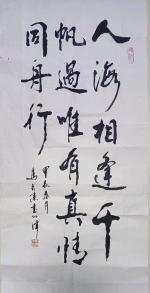 人海相逢千
帆過唯有真情
同舟行
甲辰春月